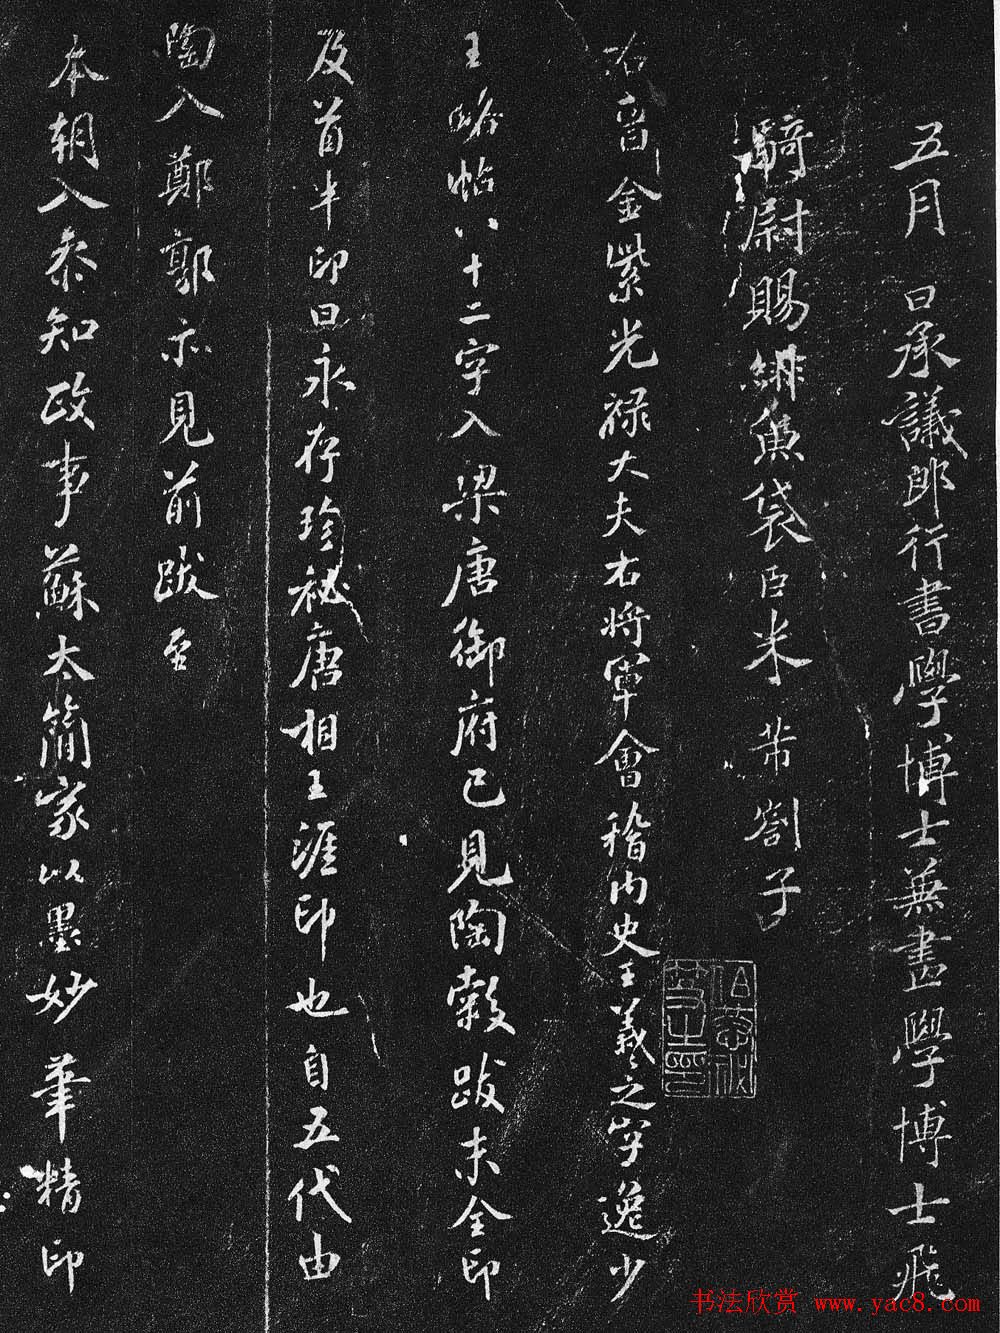 五月　日承議郎行書學博士兼畫學博士飛
騎尉賜緋魚袋臣米芾劄子
右晉金紫光祿大夫右將軍會稽內史王羲之字逸少
王略帖八十二字入梁唐御府已見陶穀跋末全印
及首半印曰永存珍秘唐相王涯印也自五代由
陶入鄭郭亦見前跋至
本朝入叅知政事蘇太簡家以墨妙筆精印
书法欣赏 www.yac8.com